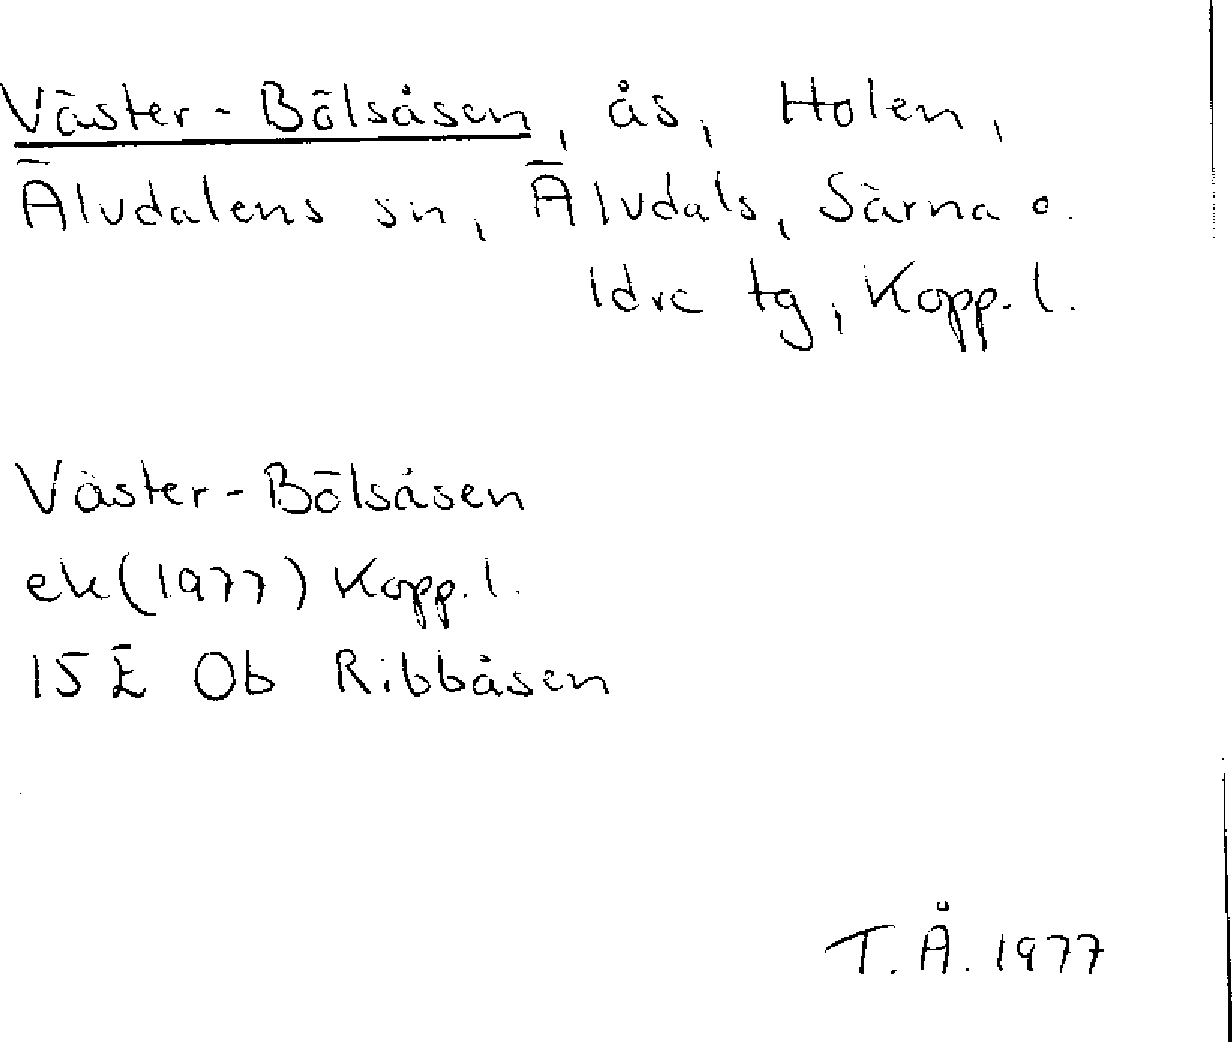 Väster-Bölsåsen, ås, Holen,
Älvdalens sn, Älvdals, Särna o.
Idre tg, Kopp. l.
Väster-Bölsåsen
ek (1977) Kopp. l.
15 E 0b Ribbåsen
T. Å. 1977